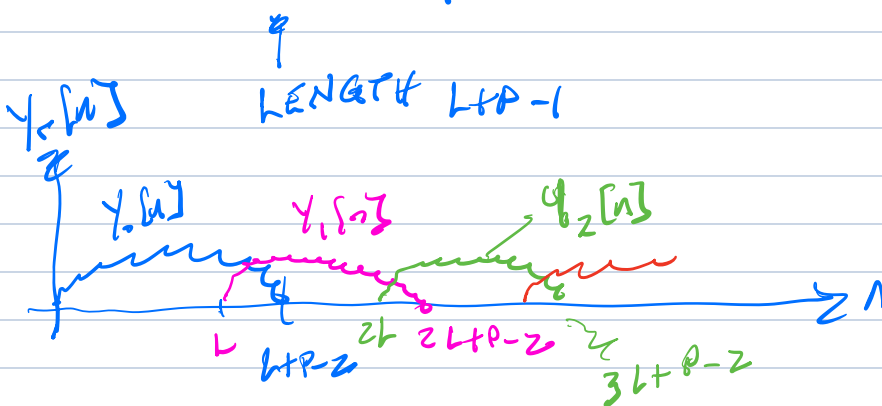 LENGTH L+P-1
Yr[n]
y0[n] y1[n] y2[n]
n
L 2L 2L+P-2
L+P-2 3L+P-2